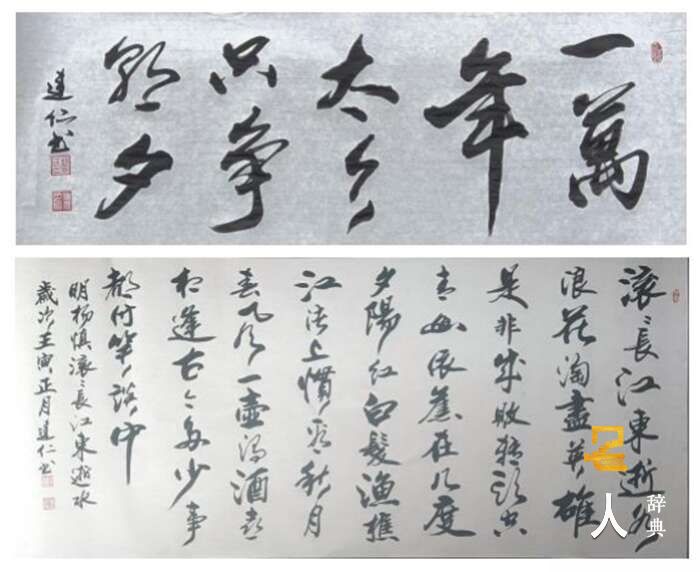 一萬
年
太久
只争
朝夕
達仁书
滚〻長江東逝水
浪花淘盡英雄
是非成敗转头空
青山依舊在几度
夕陽红白髮渔樵
江渚上惯看秋月
春风一壶浊酒喜
相逢古今多少事
都付笑谈中
明杨慎滚〻長江東逝水
歲次壬寅正月達仁书
名人辞典